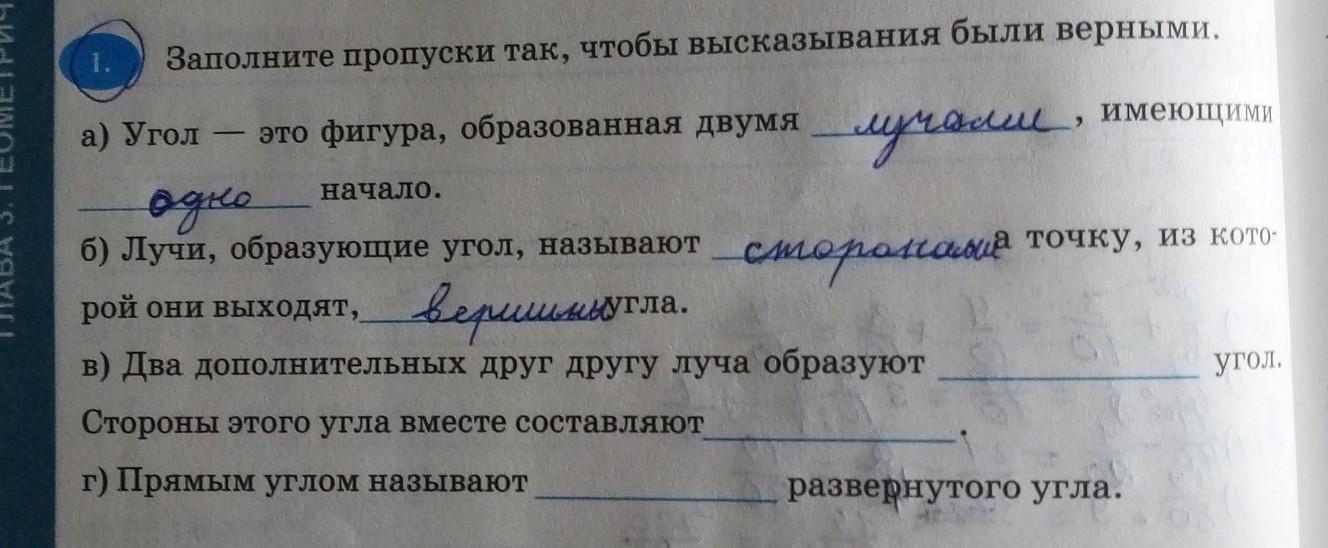 ГЛАВА 3. ГЕОМЕТРИЧ
1. Заполните пропуски так, чтобы высказывания были верными.
а) Угол — это фигура, образованная двумя лучами, имеющими
одно начало.
б) Лучи, образующие угол, называют сторонами а точку, из кото-
рой они выходят, вершины угла.
в) Два дополнительных друг другу луча образуют ____________ угол.
Стороны этого угла вместе составляют____________.
г) Прямым углом называют ____________ развернутого угла.